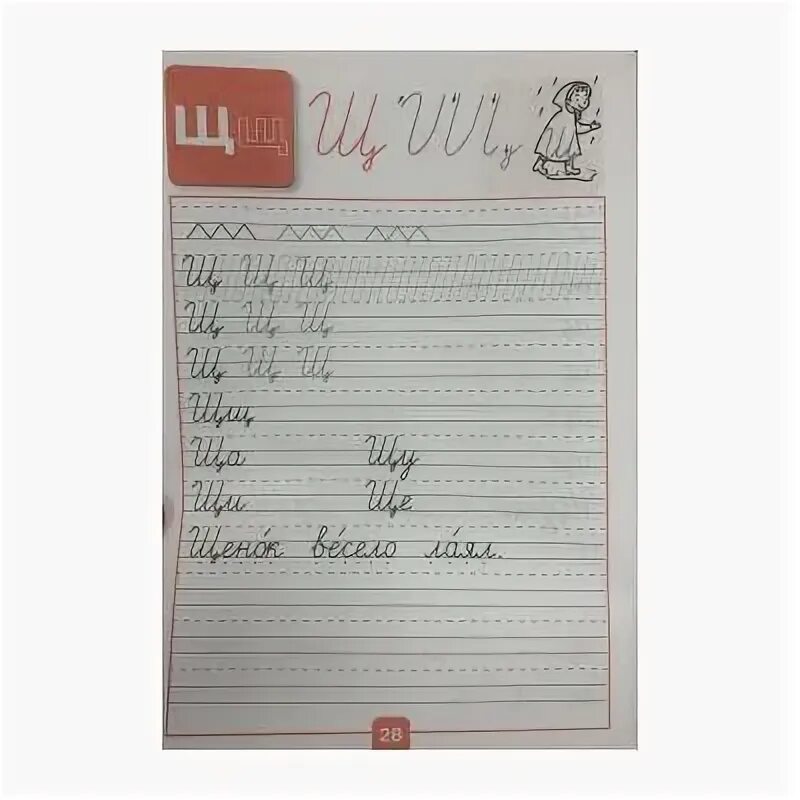 Щ Щ Щ
Щ Щ Щ
Щ Щ Щ
Щ Щ Щ
Щщ
Ща Щу
Щи Ще
Щено́к ве́село ла́ял.
28